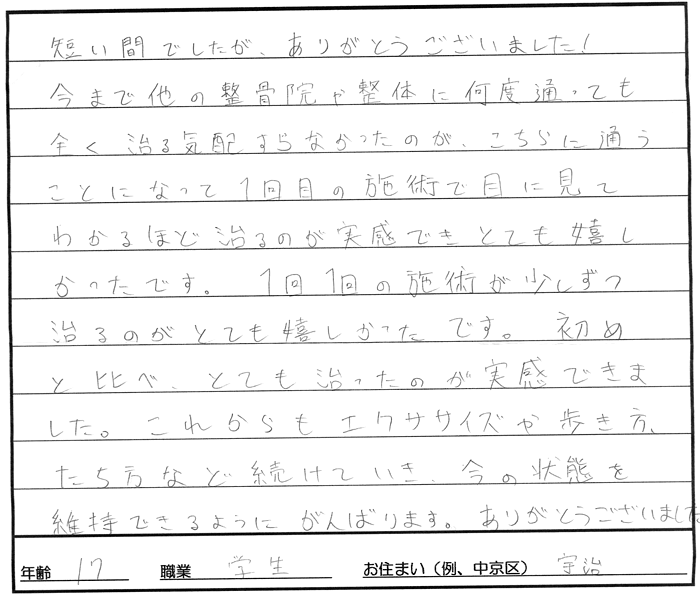 短い間でしたが、ありがとうございました!
今まで他の整骨院や整体に何度通っても
全く治る気配すらなかったのが、こちらに通う
ことになって1回目の施術で目に見て
わかるほど治るのが実感できとても嬉し
かったです。 1回1回の施術が少しずつ
治るのがとても嬉しかったです。 初め
と比べ、とても治ったのが実感できま
した。これからもエクササイズや歩き方、
たち方など続けていき、今の状態を
維持できるようにがんばります。ありがとうございました
年齢 17 職業 学生 お住まい（例、中京区） 宇治